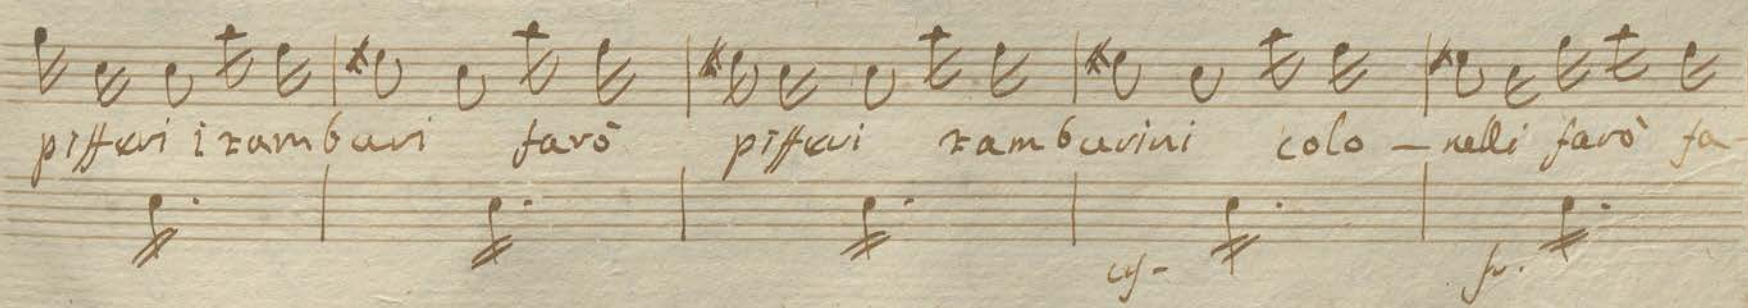 pifferi i tamburi farò pifferi tamburini colo - nelli farò fa-